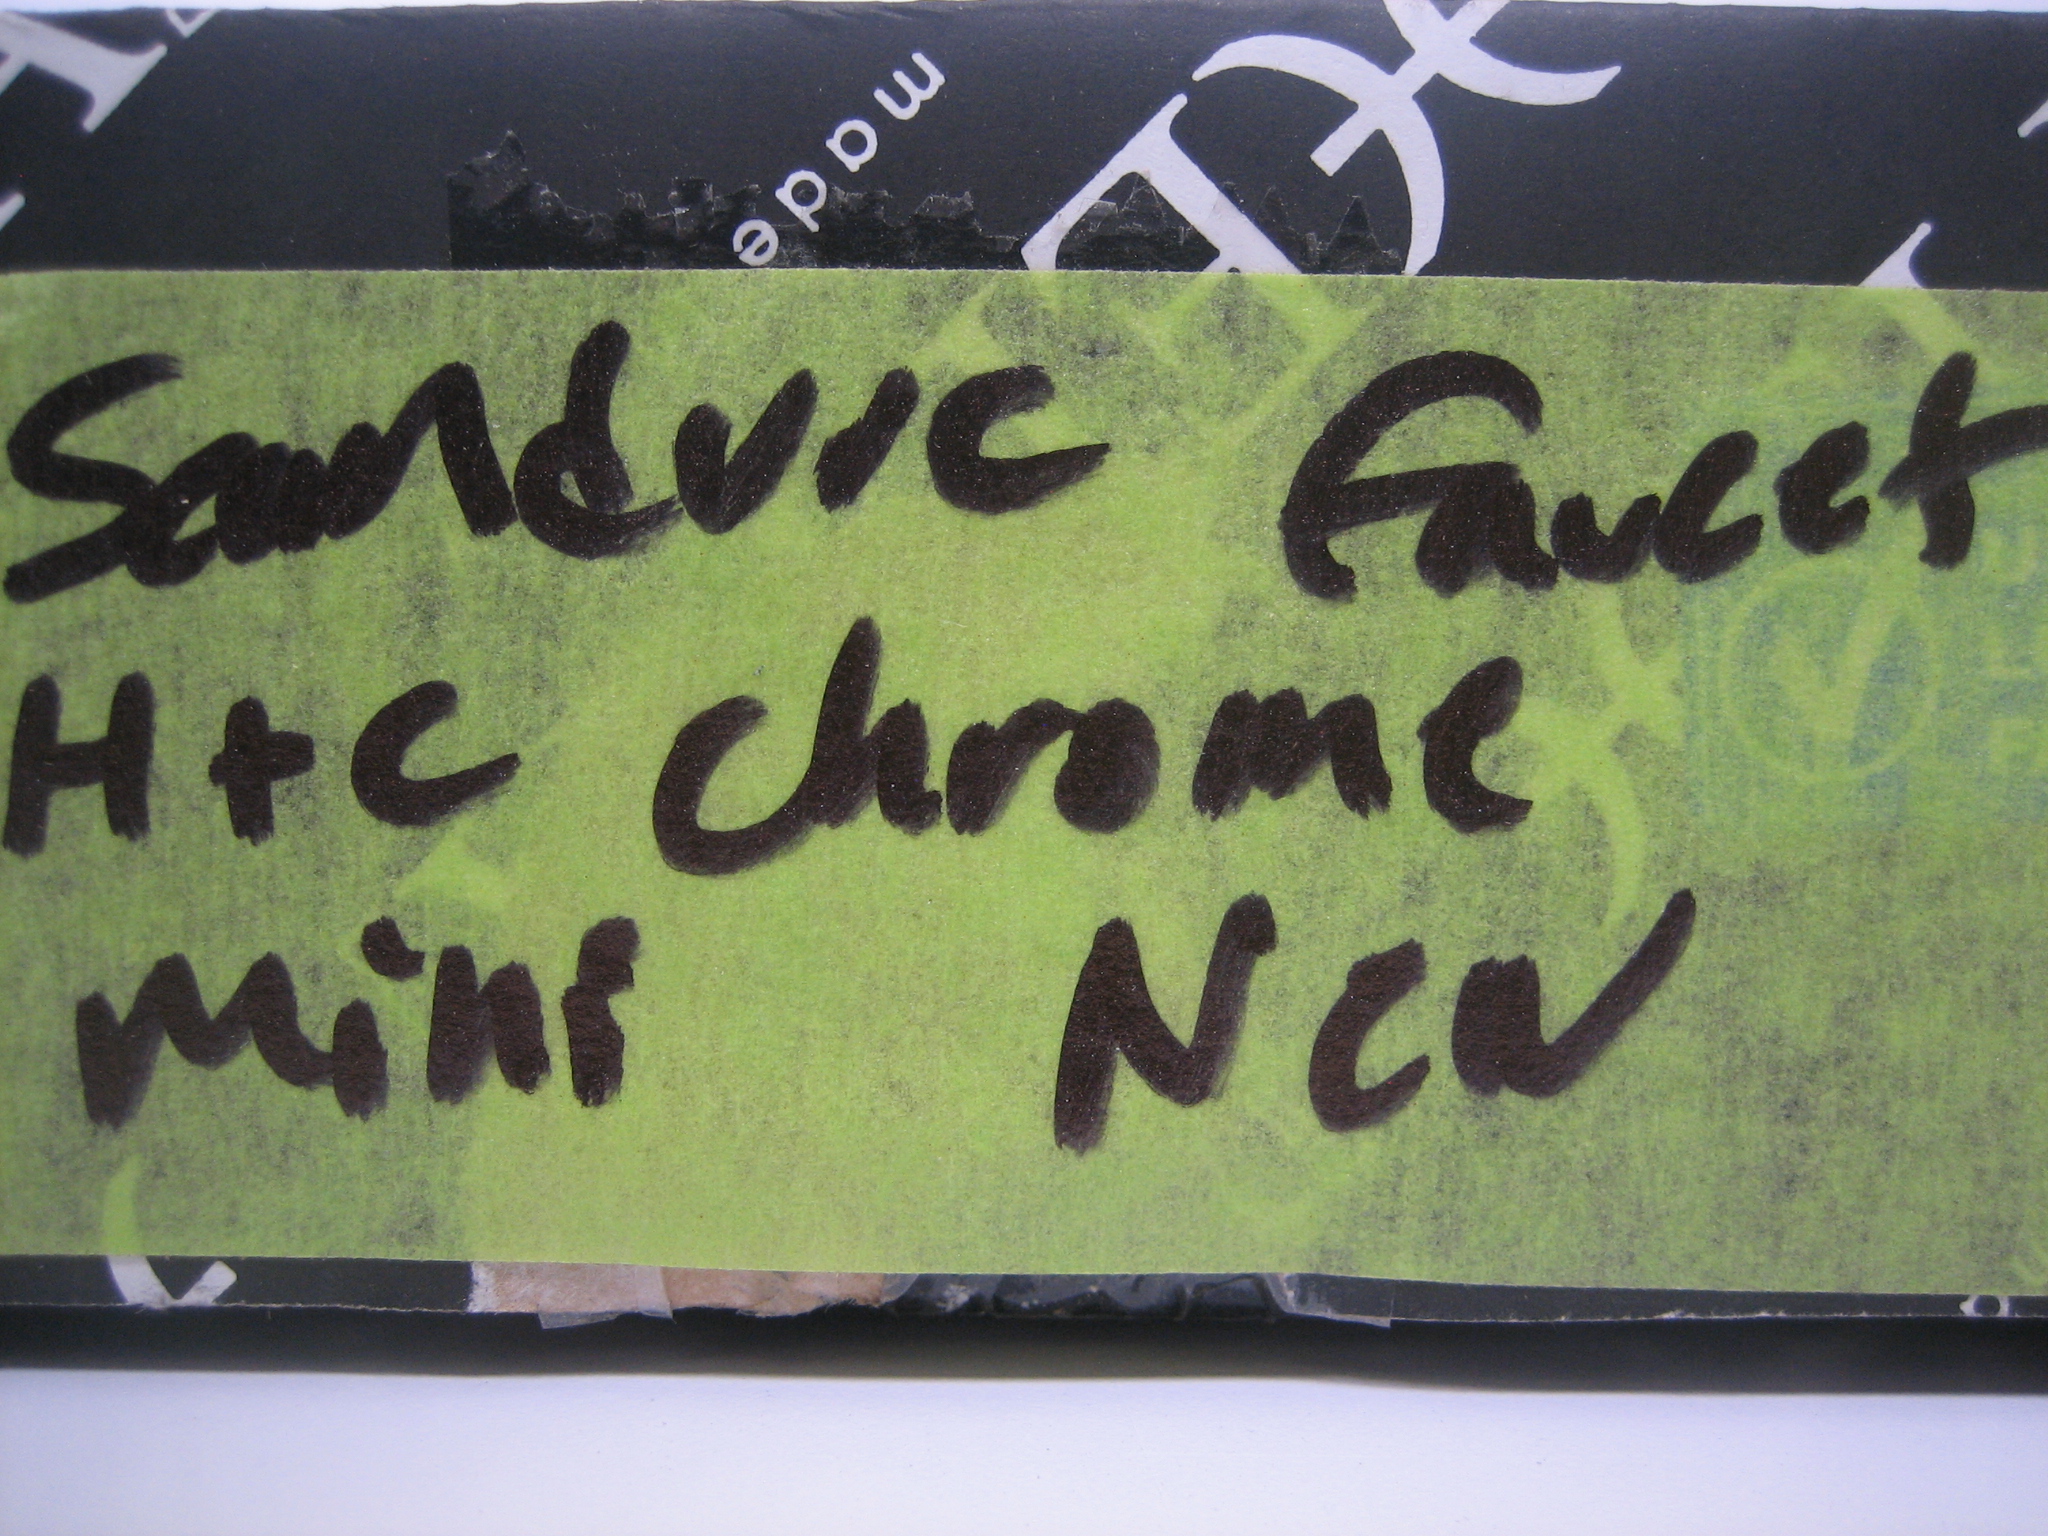 made
Sandvic Faucet
H+C Chrome
Mini New